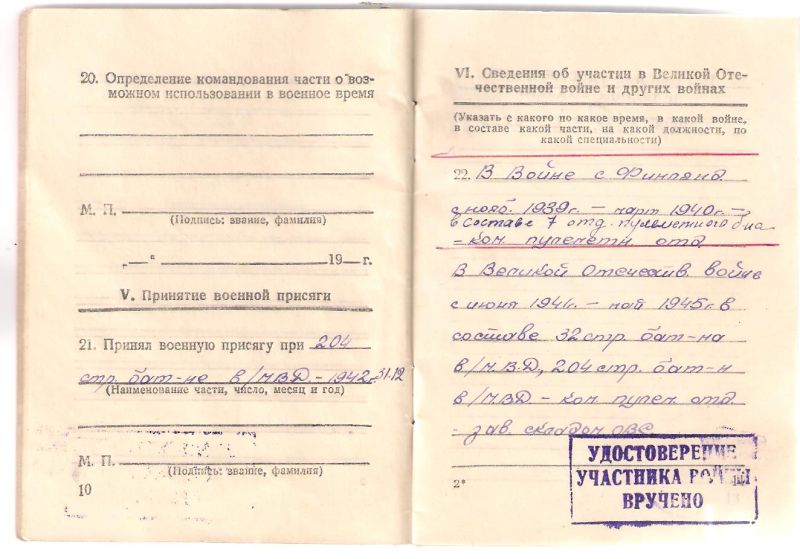 20. Определение командования части о воз-
можном использовании в военное время
М. П.
(Подпись: звание, фамилия)
„ — " 19 — г.
V. Принятие военной присяги
21. Принял военную присягу при 204
стр. бат-не в/МВД - 1942 г. 31.12
(Наименование части, число, месяц и год)
М. П.
(Подпись: звание, фамилия)
10
VI. Сведения об участии в Великой Оте-
чественной войне и других войнах
(Указать с какого по какое время, в какой войне,
в составе какой части, на какой должности, по
какой специальности)
22. В Войне с Финлянд.
с нояб. 1939 г. - март 1940 г. -
в составе 7 отд. пулеметного б-на
- ком. пулеметн. отд.
В Великой Отечествен. войне
с июня 1941 г. - май 1945 г. в
составе 32 стр. бат-на
в/МВД, 204 стр. бат-н
в/МВД - ком. пулем. отд.
- зав. складом ОВС
УДОСТОВЕРЕНИЕ
УЧАСТНИКА ВОЙНЫ
ВРУЧЕНО
2*